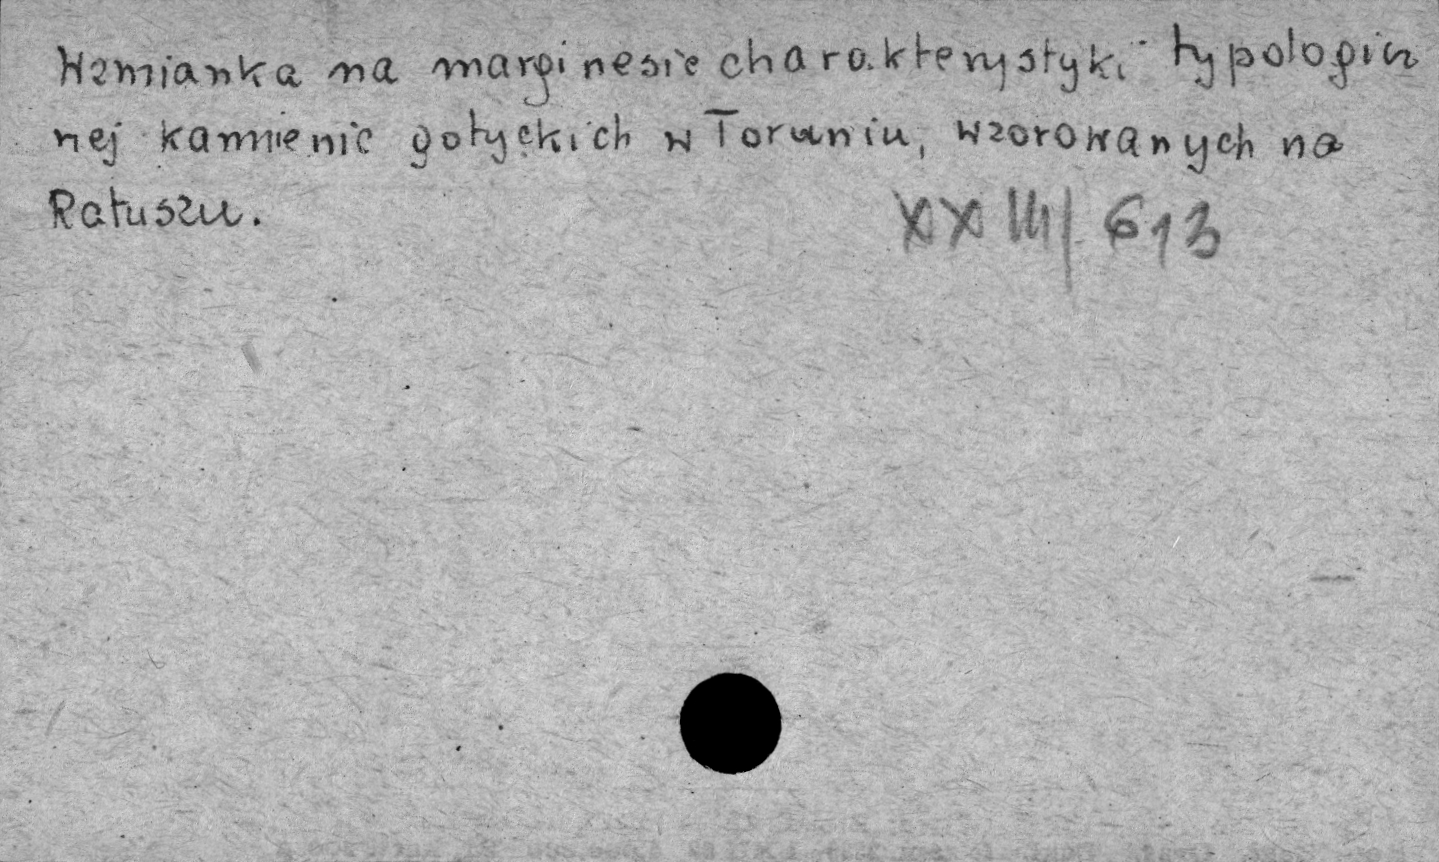 Wzmianka na marginesie charakterystyki typologicz
nej kamienic gotyckich w Toruniu, wzorowanych na
Ratuszu.
XXIII/613